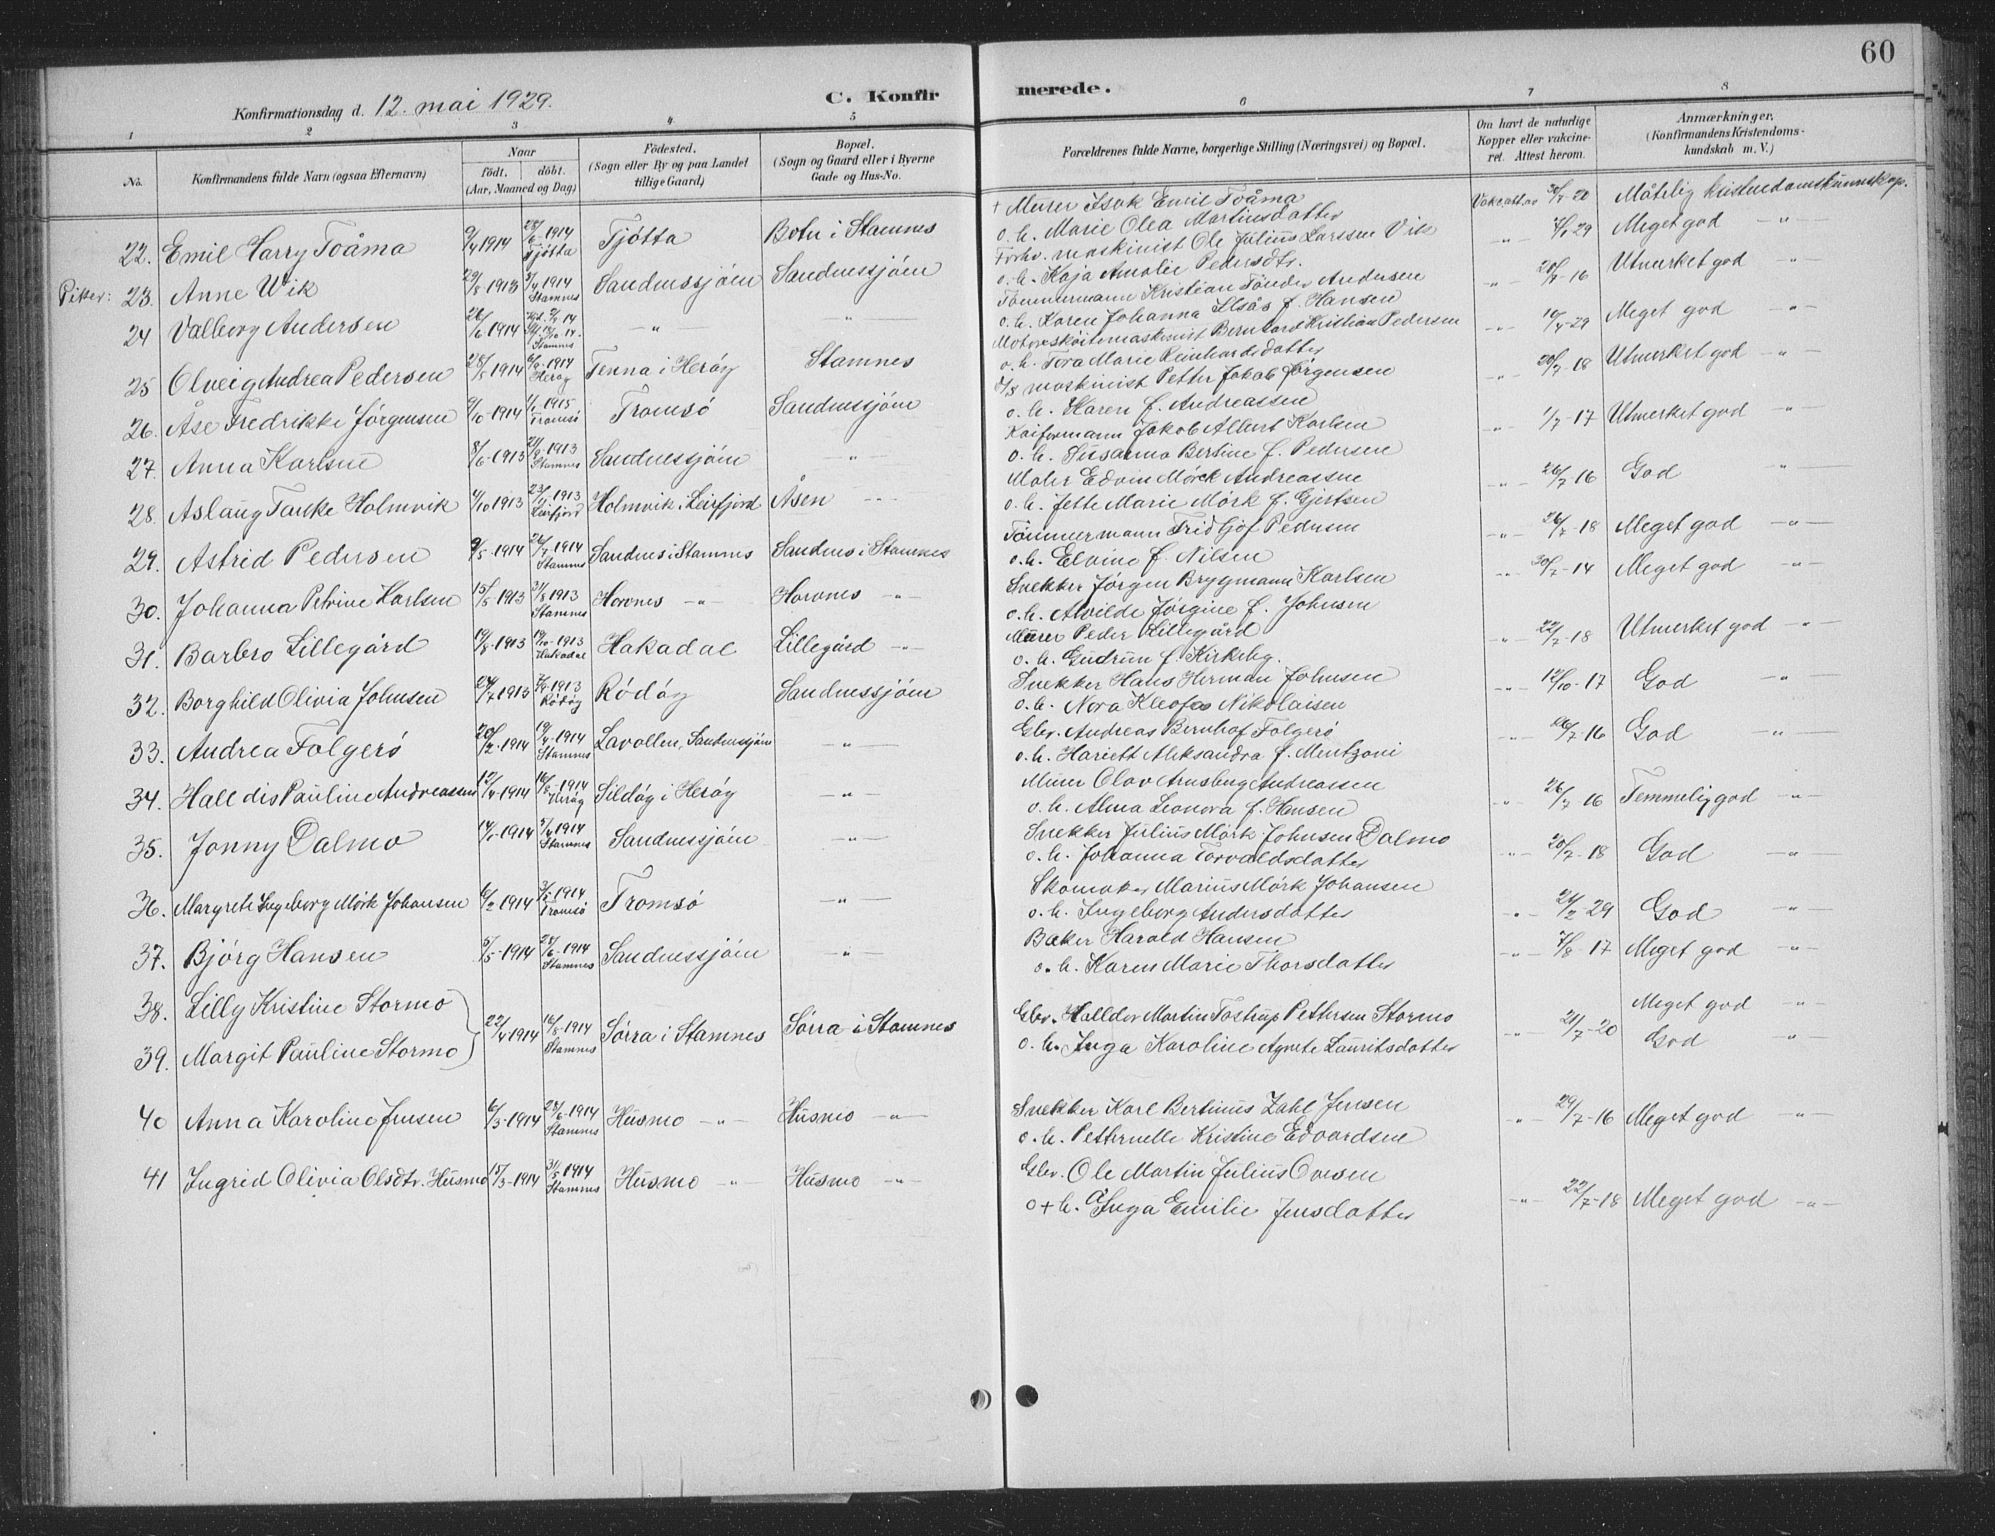 60
Konfirmationsdag d. 12. mai 1929. C. Konfir merede.
1 2 3 4 5 6 7 8
No. Konfirmandens fulde Navn (ogsaa Efternavn) Naar födt. döbt. (Aar, Maaned og Dag) Födested. (Sogn eller By og paa Landet tillige Gaard) Bopæl. (Sogn og Gaard eller i Byerne Gade og Hus-No. Forældrenes fulde Navne, borgerlige Stilling (Næringsvei) og Bopæl. Om havt de naturlige Kopper eller vakcineret. Attest herom. Anmærkninger. (Konfirmandens Kristendomskundskab m. V.)
22. Emil Harry Toåma 9/4 1914 28/6 1914 Tjøtta Tjøtta Botn i Stamnes + Murer Isak Emil Toåma Vaks.attest 30/7-20 Måtelig kristendomskunnskap.
o. h. Marie Olea Martinsdatter
Piker: 23. Anne Wik 29/8 1913 5/4 1914 Stamnes Sandnessjøen Sandnessjøen Forhv. maskinist Ole Julius Larssen Vik -"- 29 Meget god -"-
o. h. Kaja Amalie Pedersdtr.
24 Valborg Andersen 26/6 1914 Stamnes -"- -"- Tømmermann Kristian Tønder Andersen -"- 20/7-16 Utmerket god -"-
o. h. Karen Johanna Elsås f. Hansen
25. Olveig Andrea Pedersen 28/5 1914 6/9-1914 Herøy Tenna i Herøy Stamnes Motorskøitemaskinist Bernhard Kristian Pedersen -"- 10/4-29 Meget god -"-
o. h. Tora Marie Reinhardsdatter
26. Åse Fredrikke Jørgensen 9/10-1914 1/1-1915 Tromsø Tromsø Sandnessjøen D/S maskinist Petter Jakob Jørgensen -"- 20/7-18 Utmerket god -"-
o. h. Haren f. Andreassen
27. Anna Karlsen 8/6-1913 21/9-1913 Stamnes Sandnessjøen -"- Kaiformann Jakob Albert Karlsen -"- 1/7-17 Utmerket god -"-
o. h. Susanna Bertine f. Pedersen
28. Aslaug Tanke Holmvik 4/10 1913 23/11-1913 Leirfjord Holmvik i Leirfjord Åsen -"- Maler Edvin Mørck Andreassen -"- 26/7-16 God -"-
o. h. Jette Marie Mørk f. Gjertsen
29. Astrid Pedersen 9/5-1914 26/7-1914 Stamnes Sandnes i Stamnes Sandnes i Stamnes Tømmermann Fridtjof Pedersen -"- 26/7-18 Meget god -"-
o. h. Elvine f. Nilsen
30. Johanna Petrine Karlsen 15/5 1913 31/8 1913 Stamnes Horvnes -"- Horvnes -"- Snekker Jørgen Brygmann Karlsen -"- 30/7-14 Meget god -"-
o. h. Alvilde Jørgine f. Johnsen
31. Barbro Lillegård 19/8-1913 19/10-1913 Hakadal Hakadal Lillegård -"- Murer Peder Lillegård -"- 22/7-18 Utmerket god -"-
o. h. Gudrun f. Kirkeby.
32. Borghild Olivia Johnsen 24/7 1913 7/9-1913 Rødøy Rødøy Sandnessjøen Snekker Hans Herman Johnsen -"- 12/10-17 God -"-
o. h. Nora Kleofas Nikolaisen
33. Andrea Folgerø 20/2-1914 19/4-1914 Stamnes Lavollen, Sandnessjøen -"- Gbr. Andreas Bernhof Folgerø -"- 7-16 God -"-
o. h. Hariett Aleksandra f. Mentzoni
34. Halldis Pauline Andreassen 12/4-1914 16/8-1914 Herøy Sildøy i Herøy -"- Murer Olav Arnsberg Andreassen -"- 26/7 16 Temmelig god -"-
o. h. Alma Leonora f. Hansen
35. Jonny Dalmo 14/1-1914 5/4 1914 Stamnes Sandnessjøen -"- Snekker Julius Mørk Johnsen Dalmo -"- 20/7-18 God -"-
o. h. Johanna Torvaldsdatter
36. Margrete Ingeborg Mörk Johansen 6/2 1914 3/5-1914 Tromsø Tromsø -"- Skomaker Marius Mørk Johansen -"- 24/2-29 God -"-
o. h. Ingeborg Andersdatter
37. Bjørg Hansen 5/5-1914 28/6-1914 Stamnes Sandnessjøen -"- Baker Harald Hansen -"- 7/8-17 Meget god -"-
o. h. Karen Marie Thorsdatter
38. Lilly Kristine Stormo Meget god -"-
22/4 1914 16/8-1914 Stamnes Sörra i Stamnes Sörra i Stamnes Gbr. Halldor Martin Tostrup Pettersen Stormo -"- 21/7-20
39. Margit Pauline Stormo o. h. Inga Karoline Agnete Lauritsdatter God -"-
40 Anna Karoline Jensen 6/3-1914 28/6-1914 Stamnes Husmo -"- Husmo -"- Snekker Karl Bertinus Zahl Jensen -"- 29/7-16 Meget god -"-
o. h. Petternelle Kristine Edvardsen
41 Ingrid Olivia Olsdtr. Husmo 15/3-1914 31/5 1914 Stamnes Husmo -"- Husmo -"- Gbr. Ole Martin Julius Ovesen -"- 22/7-18 Meget god -"-
o + h. Inga Emilie Jensdatter